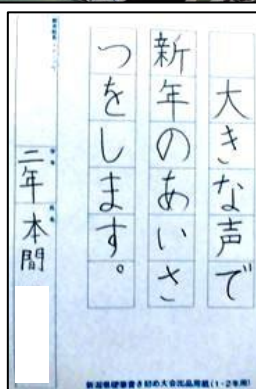 大きな声で
新年のあいさ
つをします。
二年 本間
新潟県硬筆書き初め大会出品用紙(1・2年用)